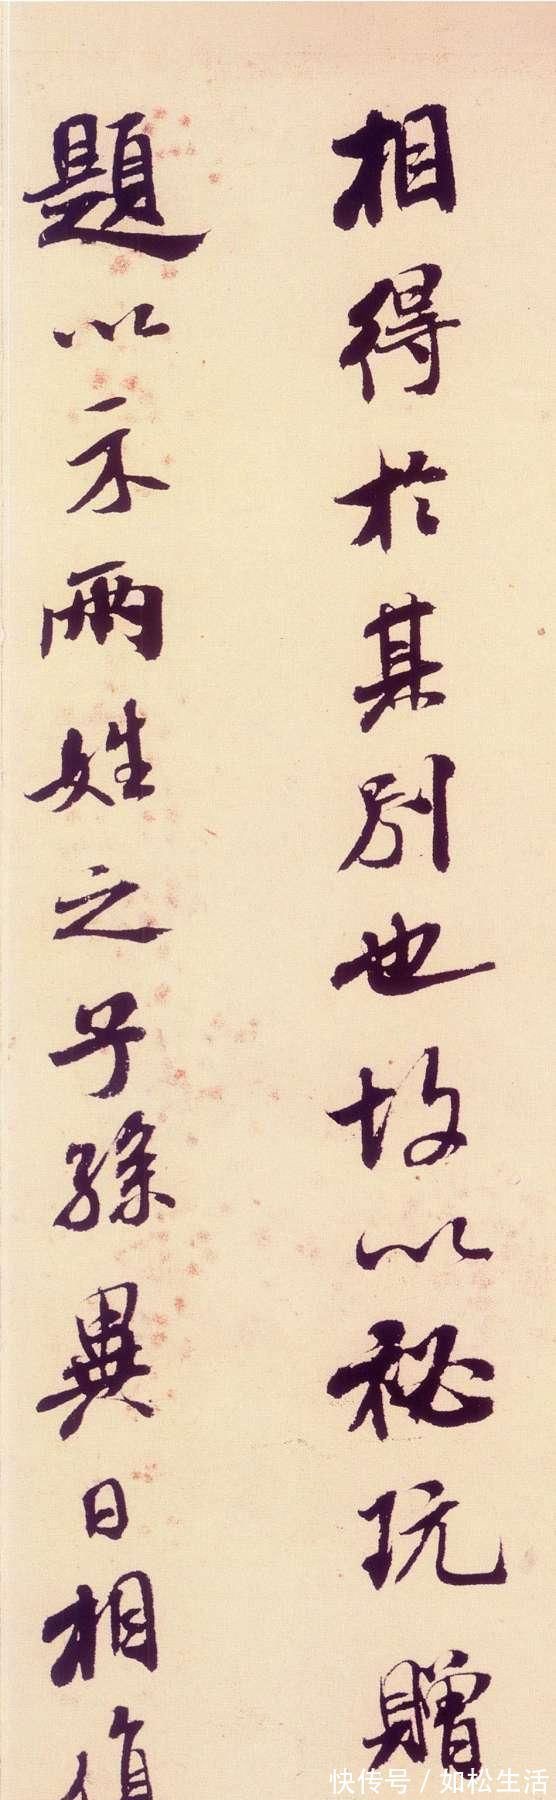 相得於其別也故以秘玩贈
題以示兩姓之子孫異日相
快传号/如松生活